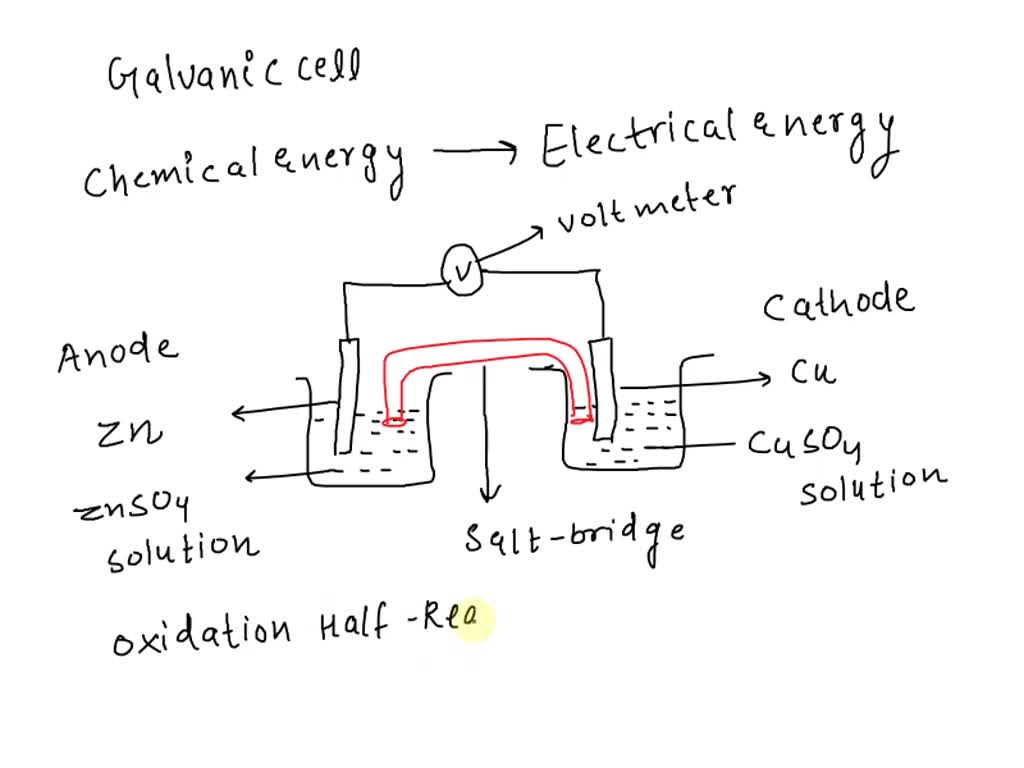 Galvanic cell
Chemical energy → Electrical energy
voltmeter
V
Cathode
Anode
Cu
Zn
CuSO4
solution
ZnSO4
solution
Salt-bridge
Oxidation Half-Rea